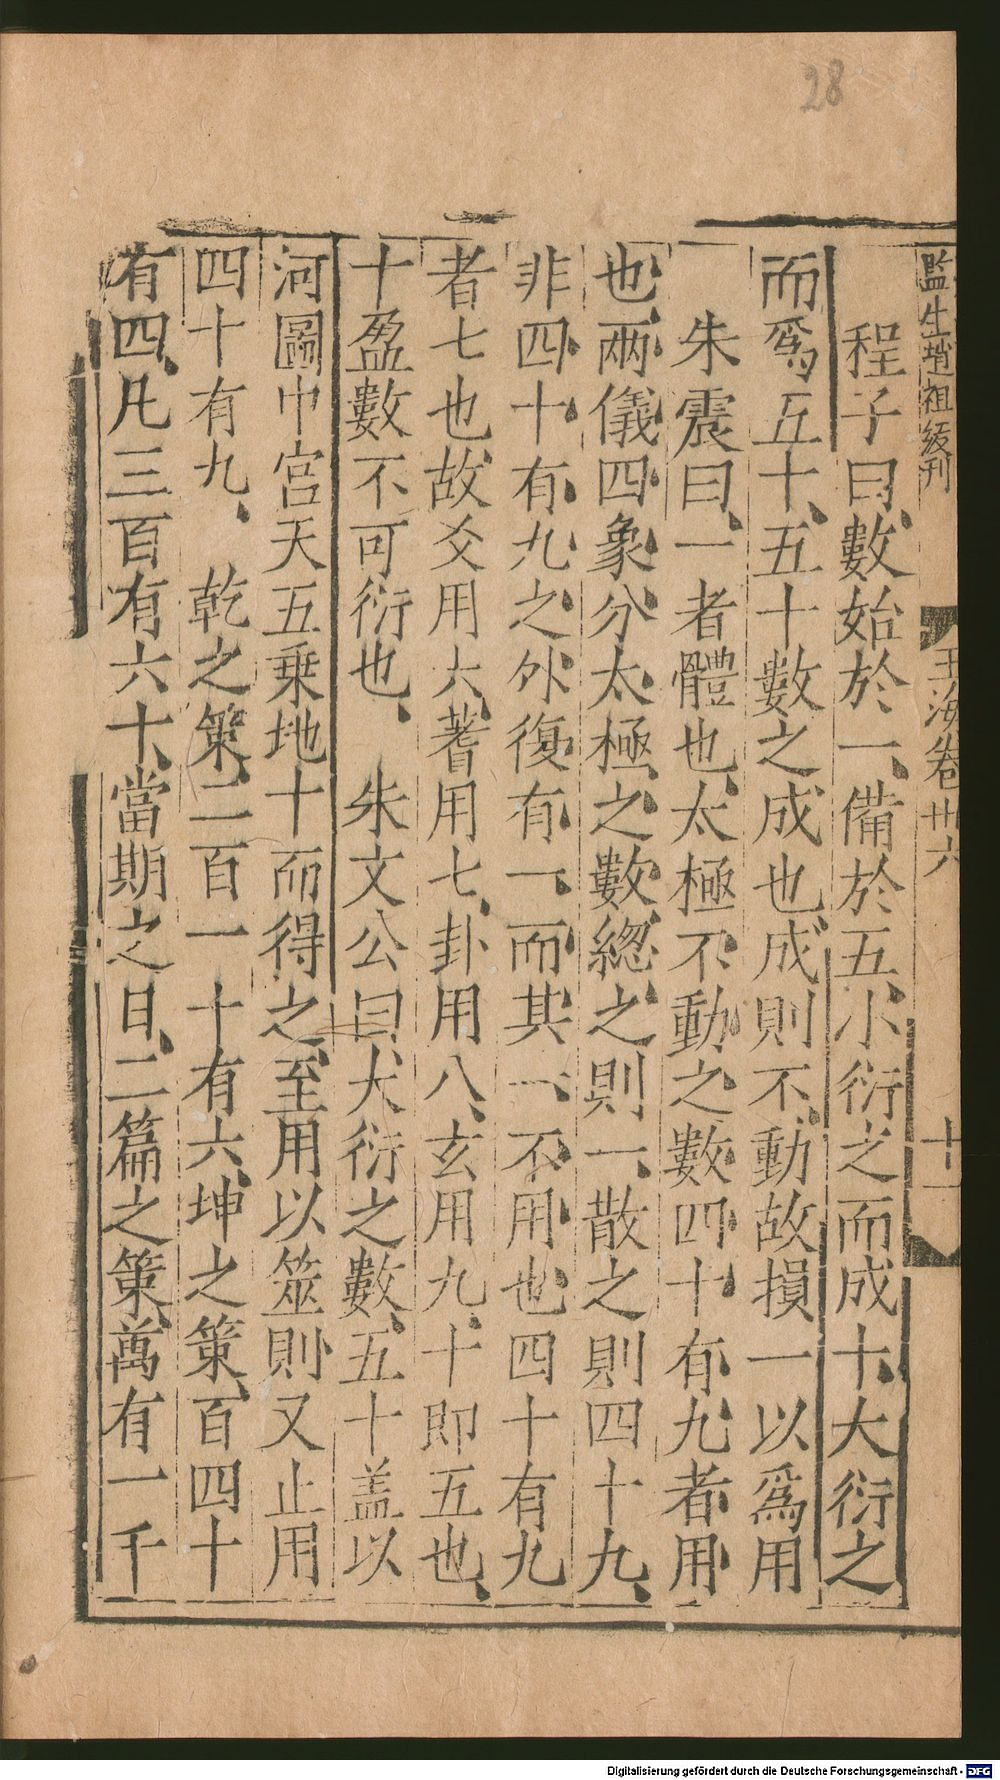 28
監生趙祖綬刊
玉海卷卅六
十一
程子曰、數始於一、備於五、小衍之而成十、大衍之
而爲五十、五十數之成也、成則不動故損一以爲用
朱震曰、一者體也、太極不動之數四十有九者用
也、兩儀四象分太極之數總之則一、散之則四十九、
非四十有九之外復有一、而其一不用也四十有九
者七也、故爻用六、蓍用七、卦用八、玄用九、十即五也、
十盈數不可衍也、　朱文公曰、大衍之數、五十盖以
河圖中宮天五乗地十而得之、至用以筮則又止用
四十有九、　乾之策、二百一十有六、坤之策、百四十
有四、凡三百有六十、當期之日、二篇之策、萬有一千
Digitalisierung gefördert durch die Deutsche Forschungsgemeinschaft - DFG